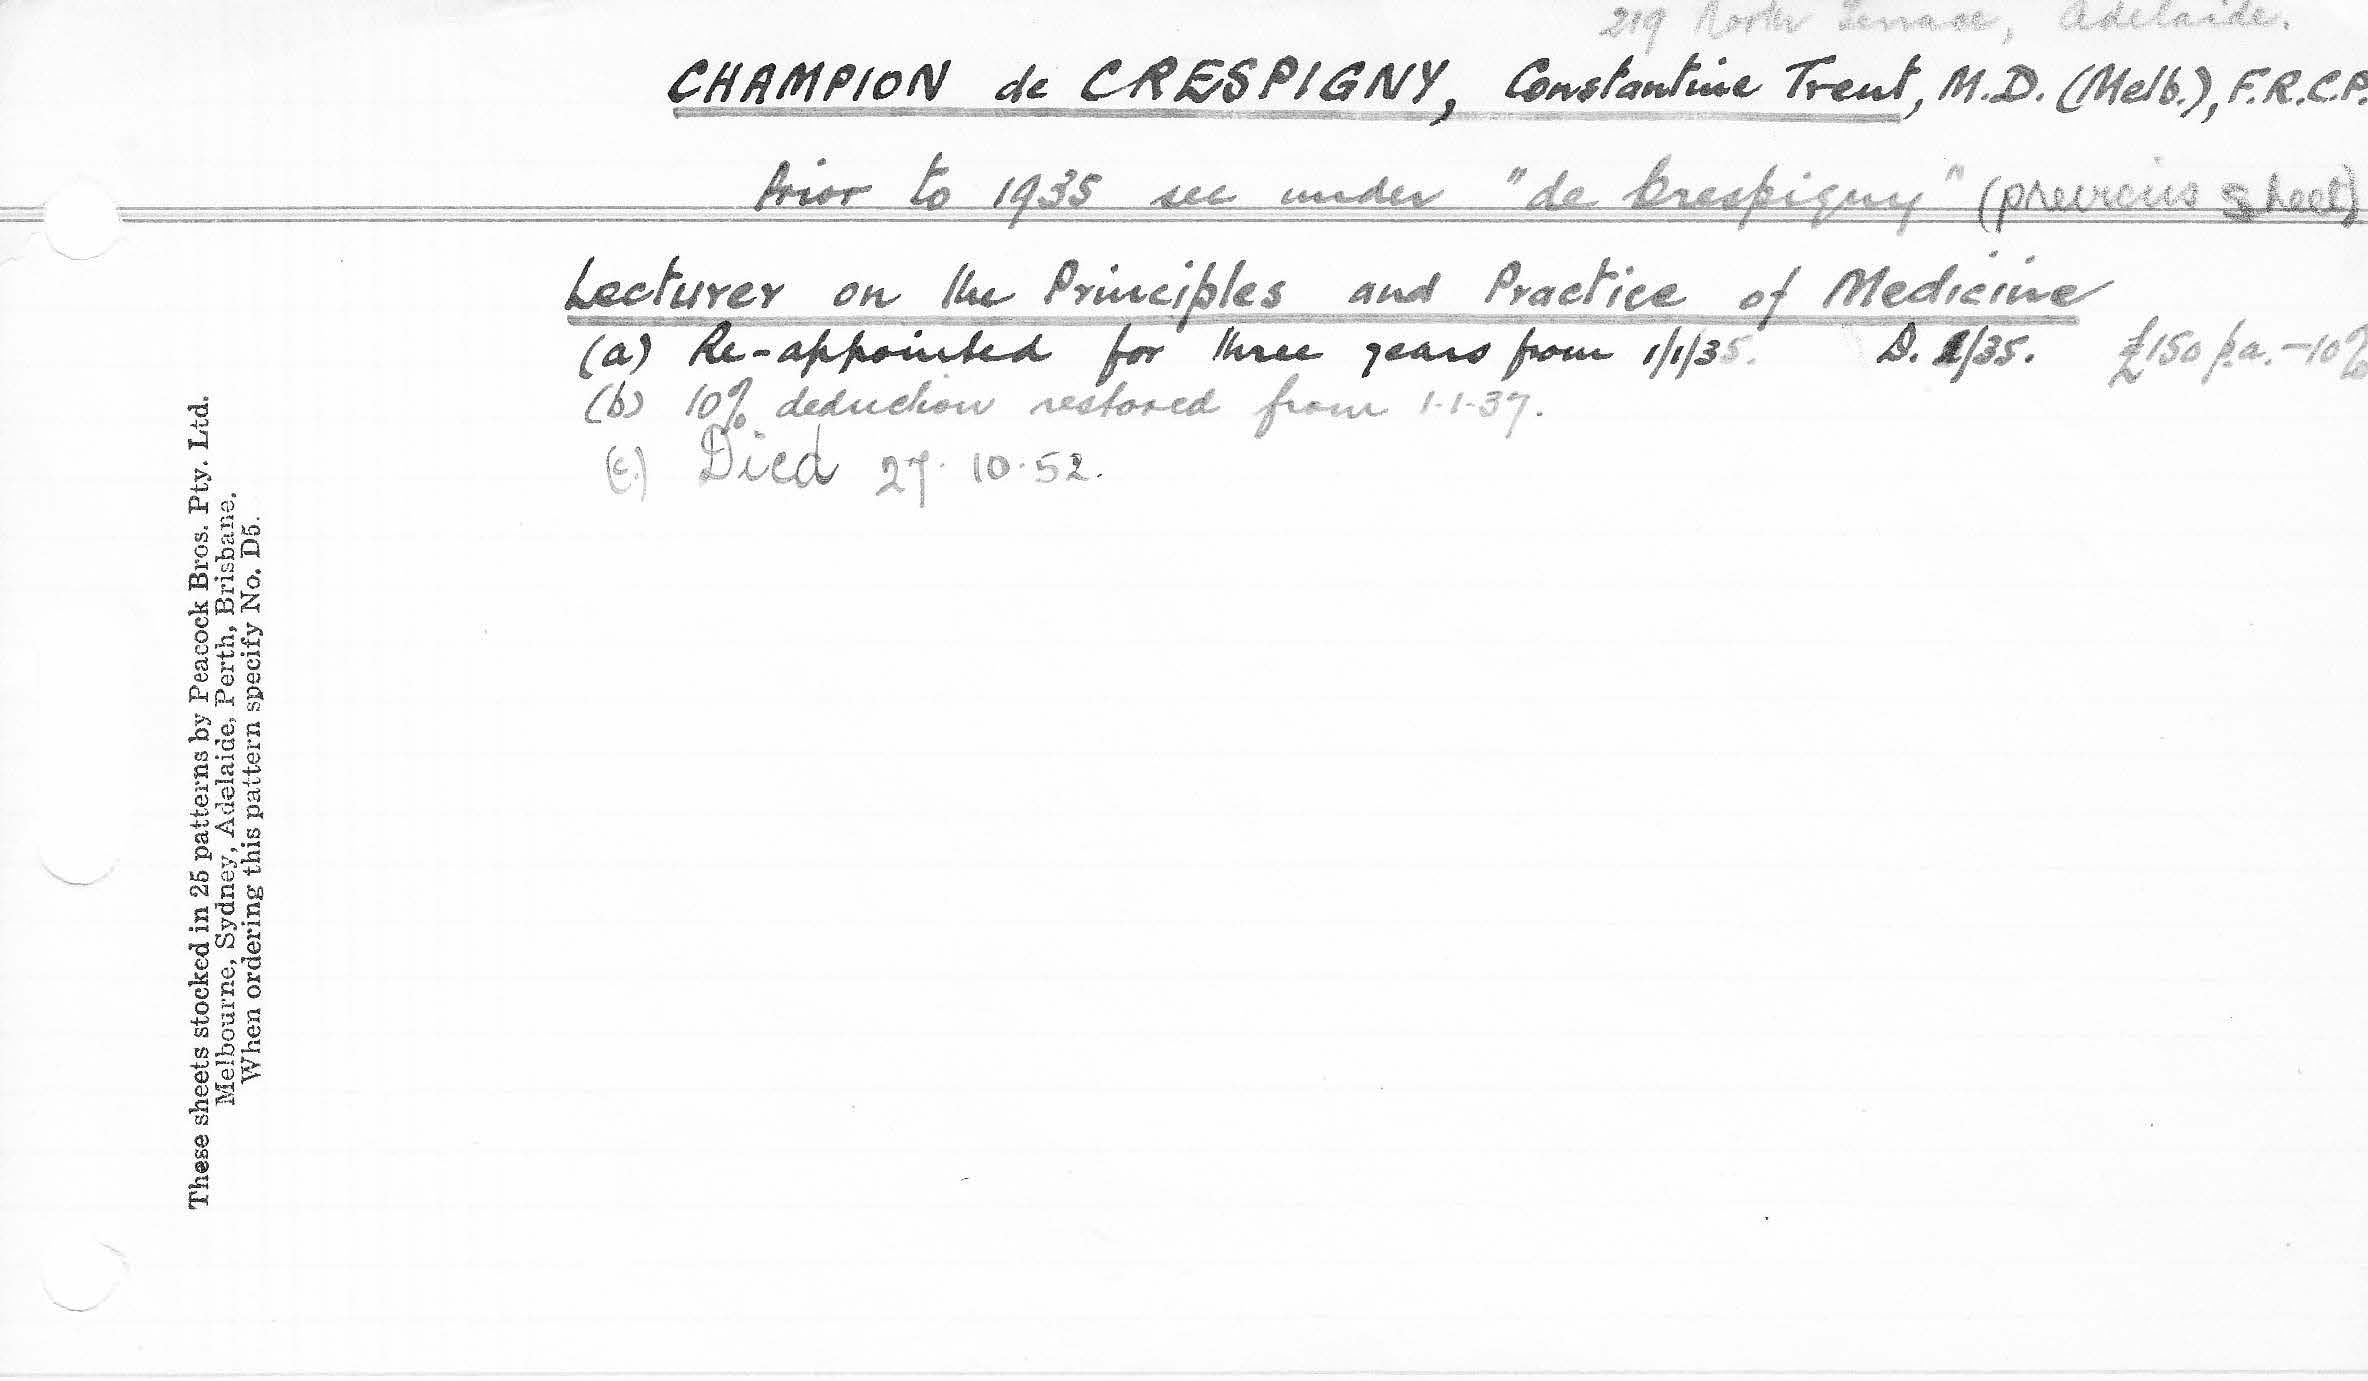 219 North Terrace, Adelaide.
CHAMPION de CRESPIGNY, Constantine Trent, M.D. (Melb.), F.R.C.P.
Prior to 1935 see under "de Crespigny" (previous sheet)
Lecturer on the Principles and Practice of Medicine
(a) Re-appointed for three years from 1/1/35. D. /35. £150 p.a. -10%
(b) 10% deduction restored from 1-1-37.
(c.) Died 27.10.52.
These sheets stocked in 25 patterns by Peacock Bros. Pty. Ltd.
Melbourne, Sydney, Adelaide, Perth, Brisbane.
When ordering this pattern specify No. D5.